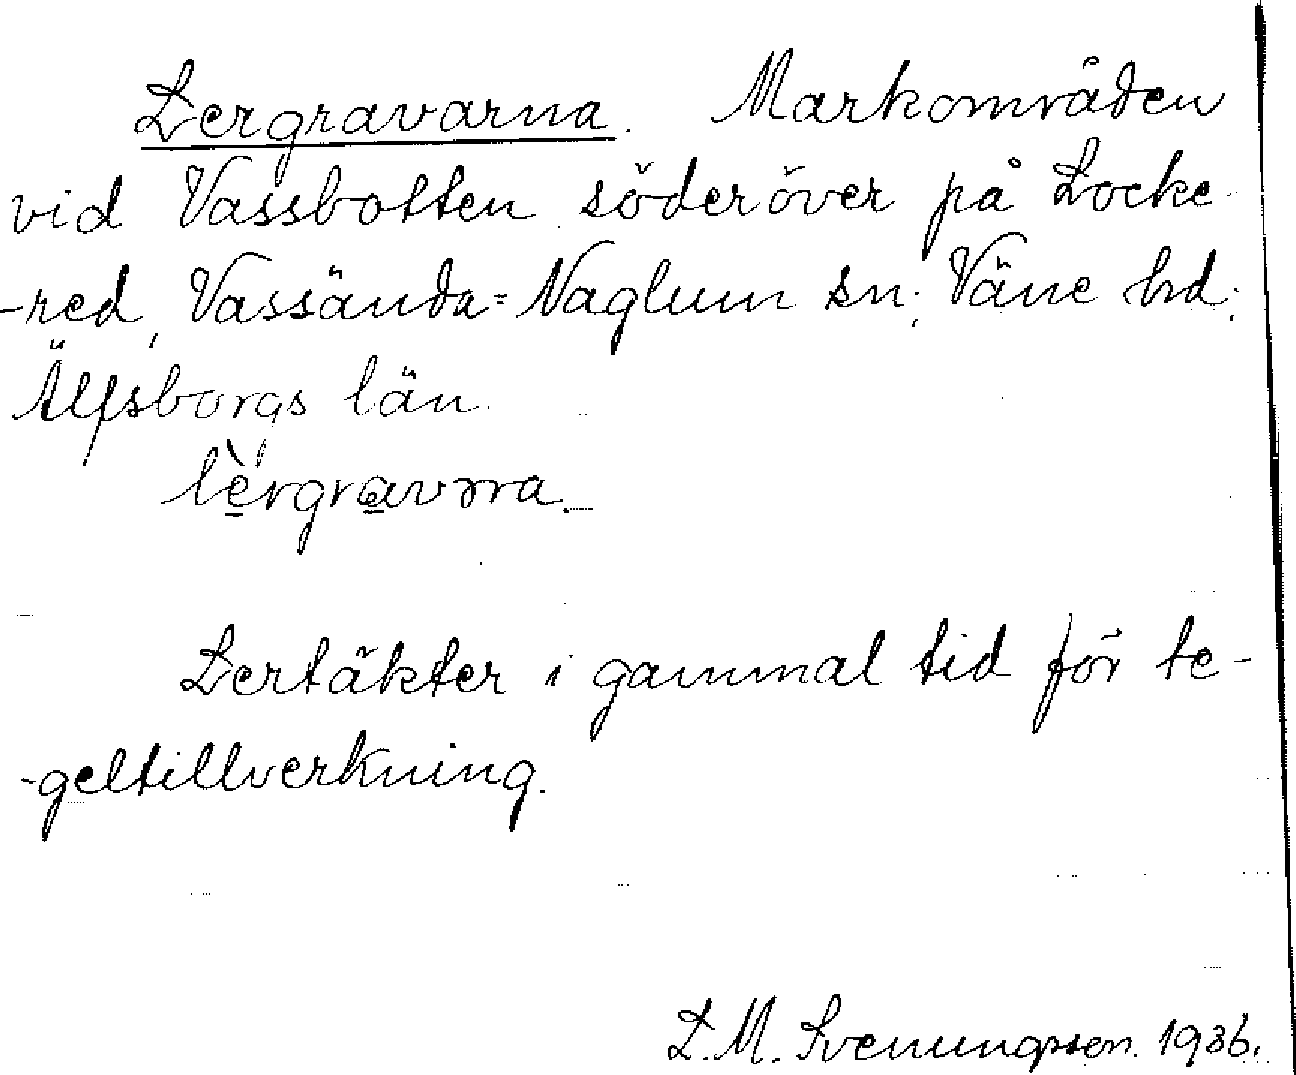 Lergravarna. Markområden
vid Vassbotten söderöver på Locke-
-red, Vassända=Naglum sn; Väne hd;
Älfsborgs län.
lèrgravɔrɴa.
Lertäkter i gammal tid för te-
-geltillverkning.
L.M. Svenungsson. 1936.